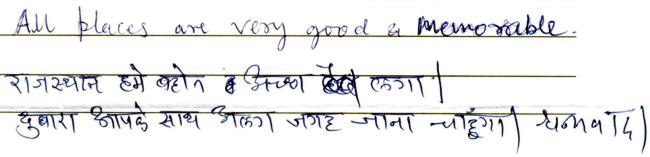 All places are very good & memorable.
राजस्थान हमे बहोत अच्छा लगा|
दुबारा आपके साथ अलग जगह जाना चाहूंगा| धन्यवाद|